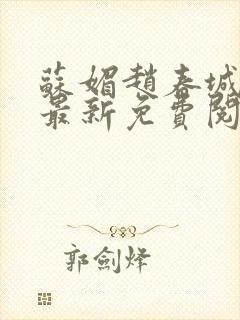 蘇媚趙春城
最新免費閱
郭劍烽